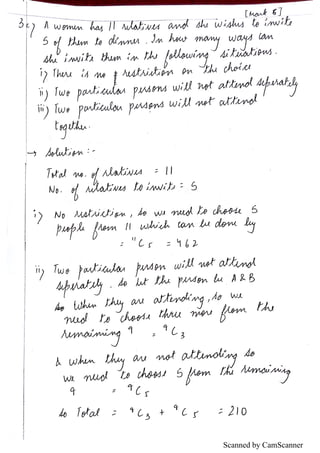 [Mark 6]
3c) A women has 11 relatives and she wishes to invite
5 of them to dinner. In how many ways can
she invite them in the following situations.
i) There is no restriction on the choice
ii) Two particular persons will not attend seperately
iii) Two particular persons will not attend
together.
→ Solution :-
Total no. of relatives = 11
No. of relatives to invite = 5
i) No restriction, so we need to choose 5
people from 11 which can be done by
= ¹¹C₅ = 462
ii) Two particular person will not attend
seperately. So let the person be A & B
so when they are attending, so we
need to choose three more from the
remaining 9 = ⁹C₃
& when they are not attending so
we need to choose 5 from the remaining
9 = ⁹C₅
so Total = ⁹C₃ + ⁹C₅ = 210
Scanned by CamScanner